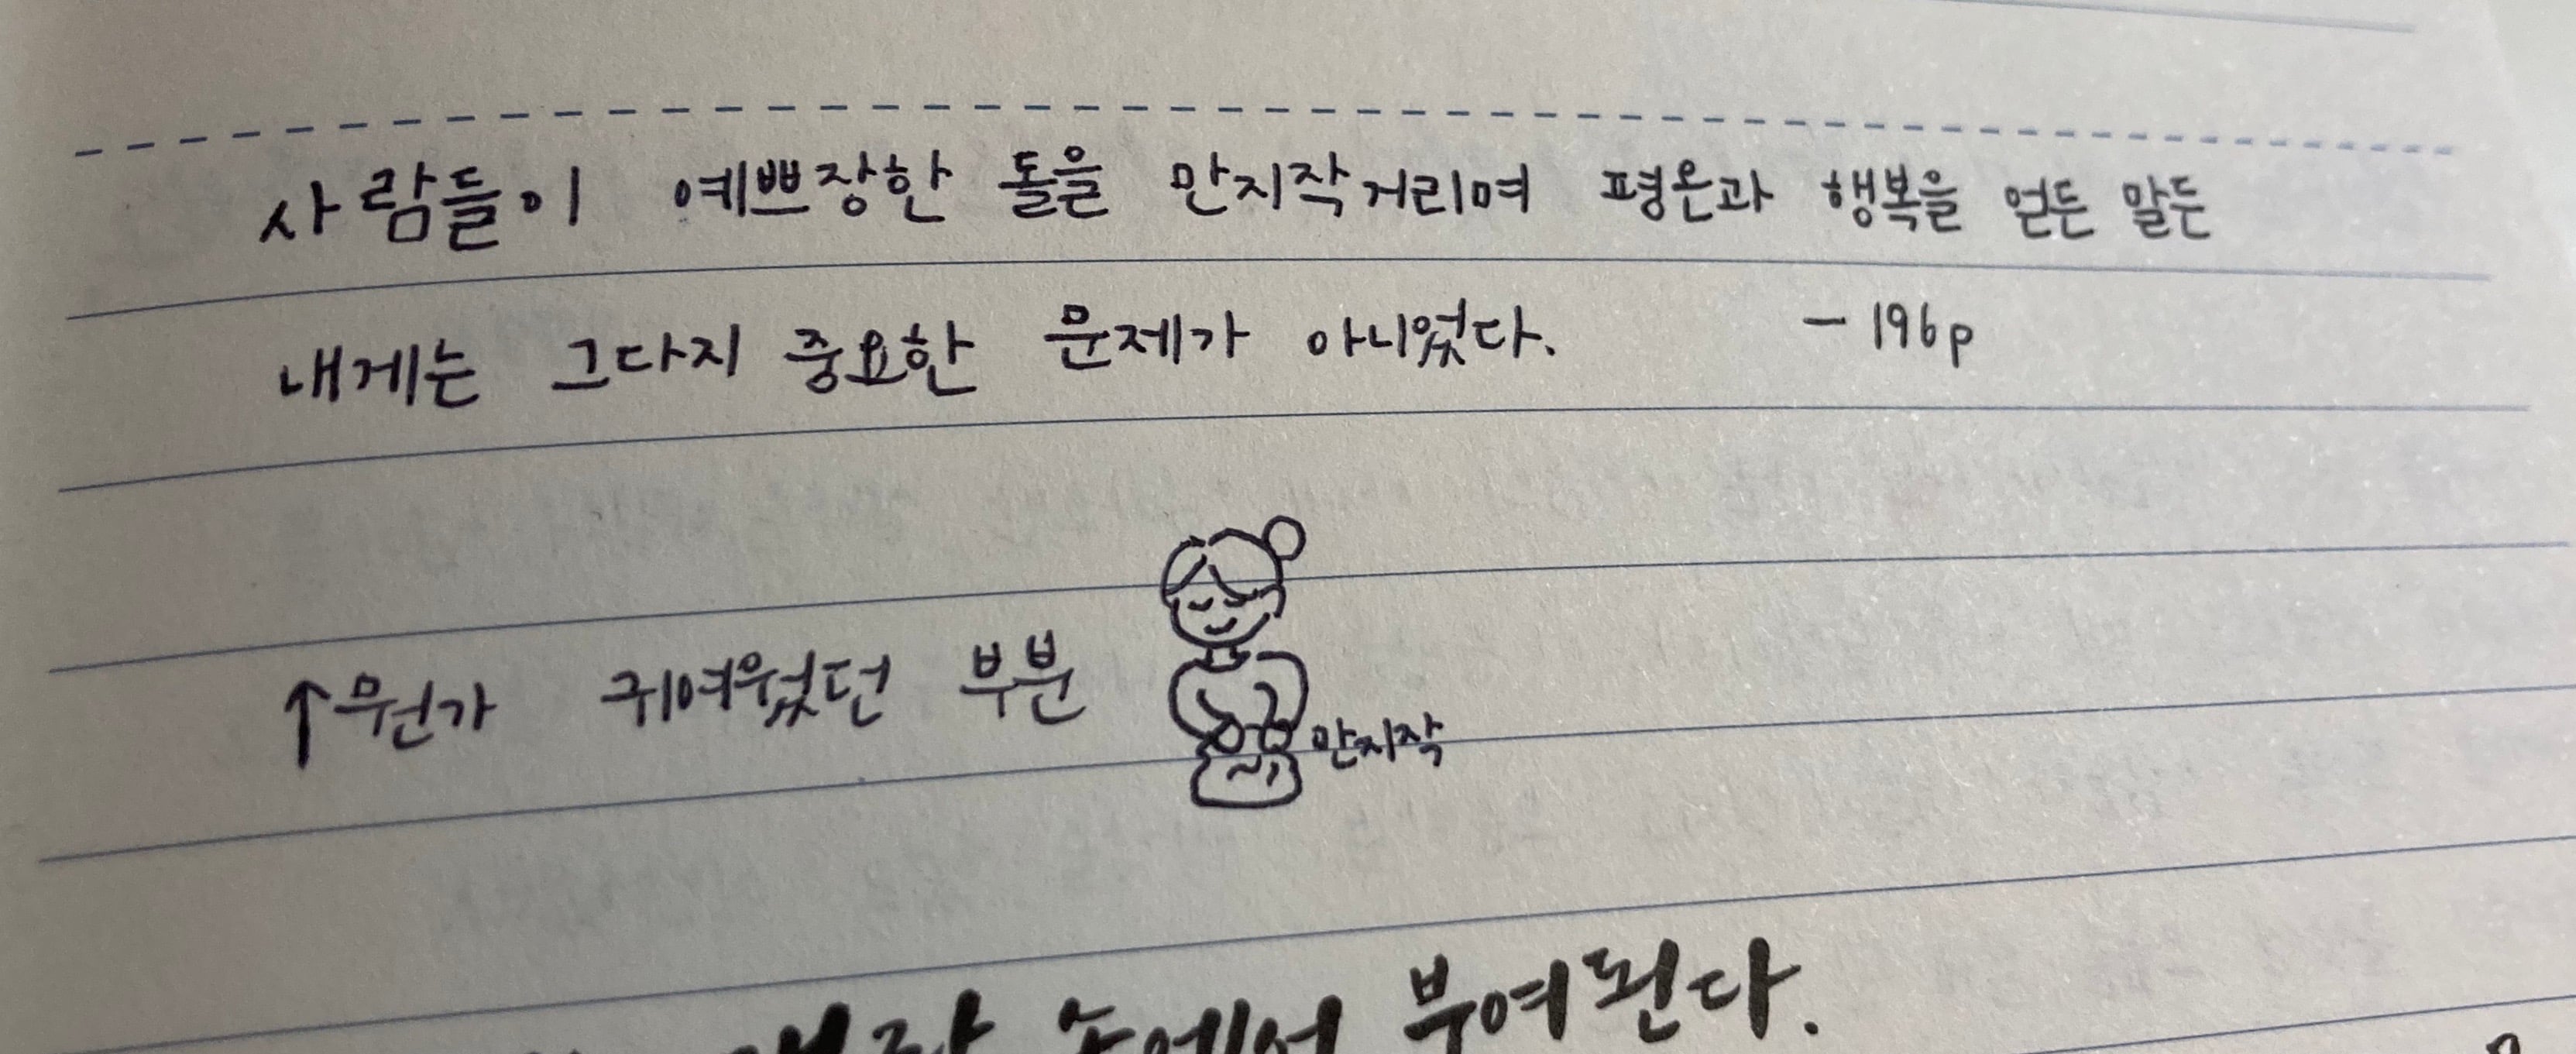 사람들이 예쁘장한 돌을 만지작거리며 평온과 행복을 얻든 말든
내게는 그다지 중요한 문제가 아니었다. - 196p
↑뭔가 귀여웠던 부분
만지작
부여된다.